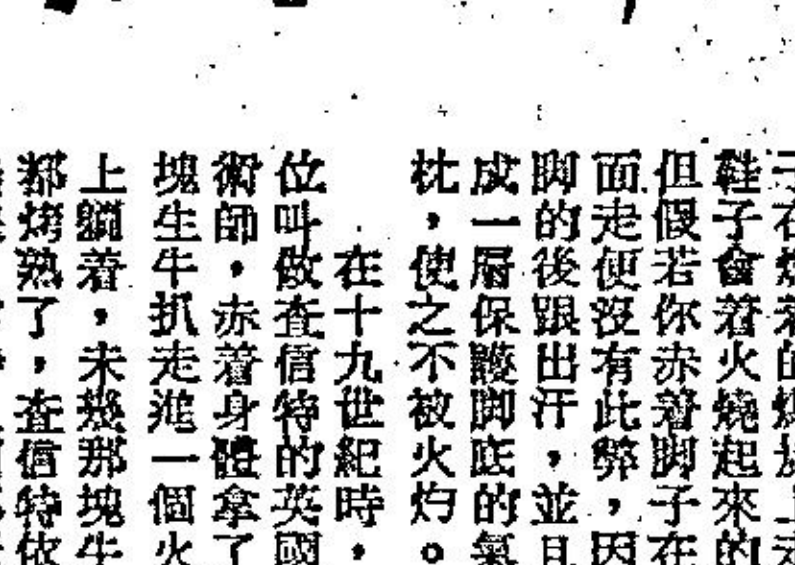 子在燃着的煤炭上走
鞋子會着火燒起來的
但假若你赤着脚子在
面走便沒有此弊，因
脚的後跟出汗，並且
成一層保護脚底的氣
枕，使之不被火灼。
在十九世紀時，
位叫做查信特的英國
術師，赤着身體拿了
塊生牛扒走進一個火
上躺着，未幾那塊牛
都烤熟了，查信特依